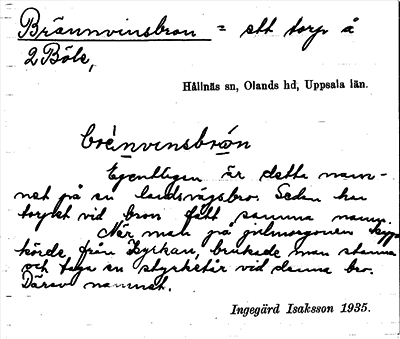 Brännvinsbron = ett torp å
2 Böle,
Hållnäs sn, Olands hd, Uppsala län.
brè̀nvinsbrón
Egentligen är detta nam-
net på en landsvägsbro. Sedan har
torpet vid bron fått samma namn.
När man på julmorgonen
körde från kyrkan, brukade man stanna
och taga en styrketår vid denna bro.
Därav namnet.
Ingegärd Isaksson 1935.